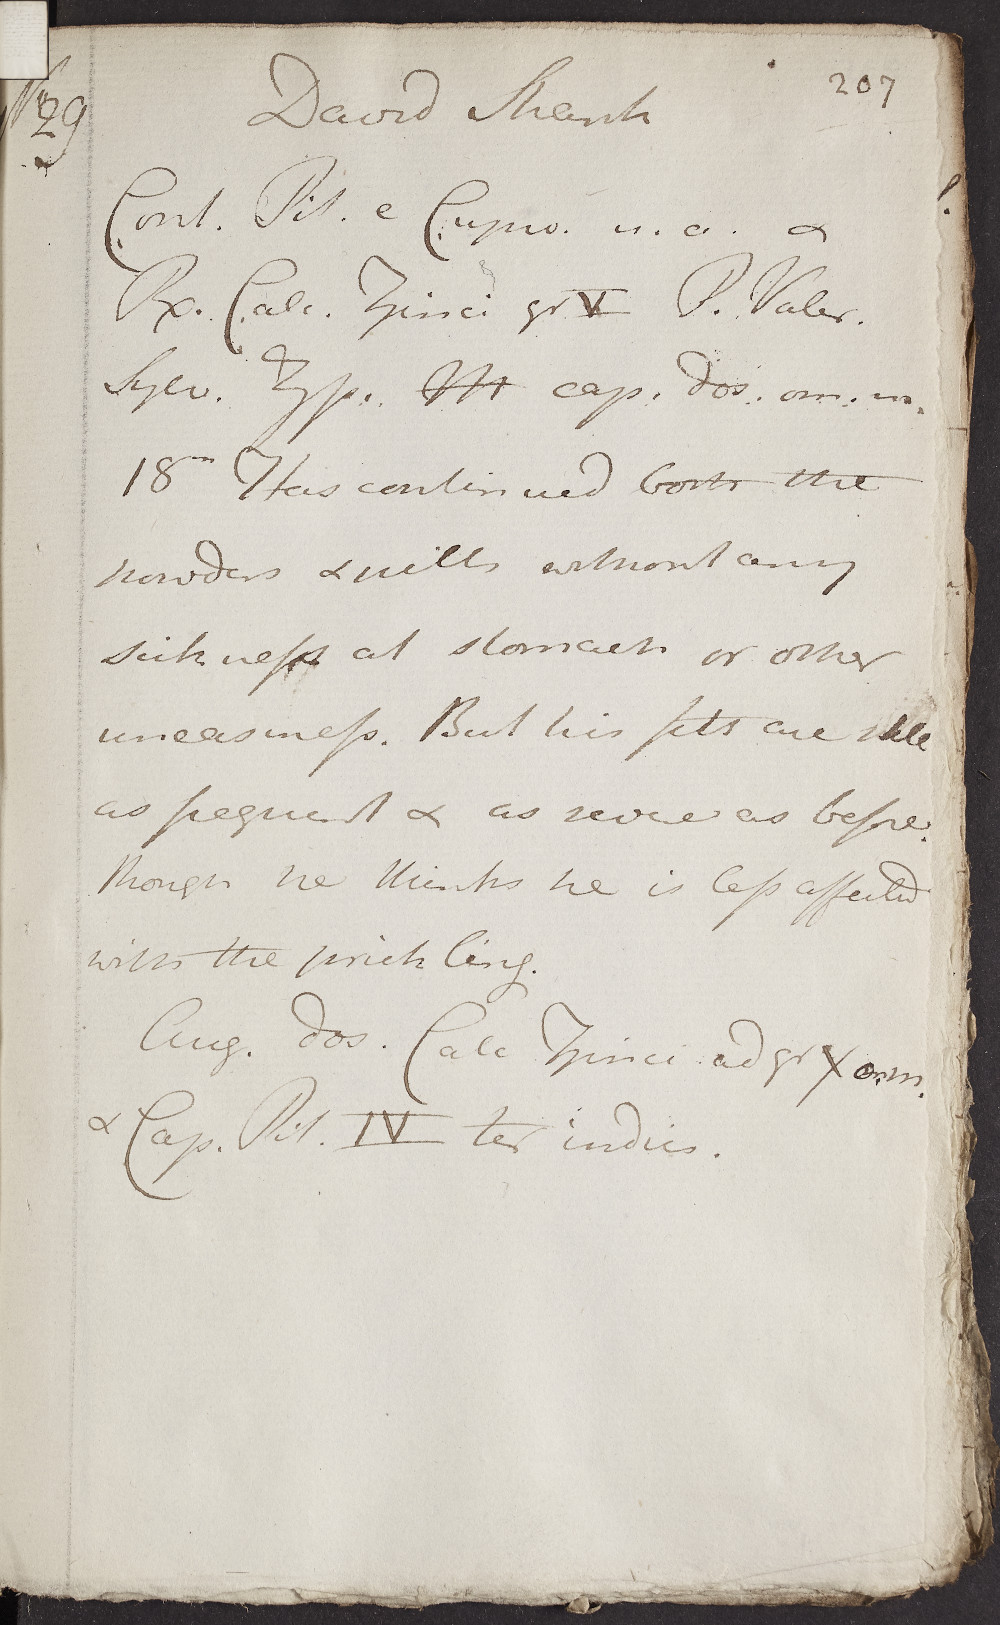 207
No 29
David Shank
Cont. Pil. e Cupro. u.a. &
Rx. Calc. Zinci gr V P. Valer.
Sylv. Zyp. cap. dos. om. m.
18th Has continued both the
powders & pills without any
sickness at stomach or other
uneasiness. But his fitts are still
as frequent & as severe as before.
though he thinks he is less affected
with the prickling.
Aug. dos. Calc Zinci ad gr X o.m.
& Cap. Pil. IV ter indies.